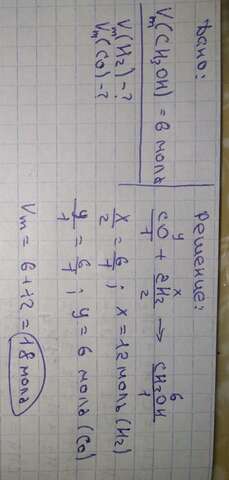 Дано:
Vm(CH3OH) = 6 моль
Vm(H2) - ?
Vm(CO) - ?
Решение:
y x 6
CO + 2H2 → CH3OH
1 2 1
x/2 = 6/1; x = 12 моль (H2)
y/1 = 6/1; y = 6 моль (CO)
Vm = 6 + 12 = 18 моль